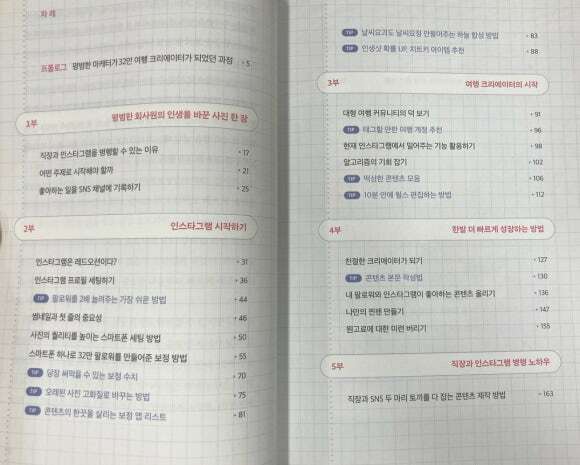 차례
프롤로그 평범한 마케터가 32만 여행 크리에이터가 되었던 과정 • 5
1부 평범한 회사원의 인생을 바꾼 사진 한 장
직장과 인스타그램을 병행할 수 있는 이유 • 17
어떤 주제로 시작해야 할까 • 21
좋아하는 일을 SNS 채널에 기록하기 • 25
2부 인스타그램 시작하기
인스타그램은 레드오션이다? • 31
인스타그램 프로필 세팅하기 • 36
TIP 팔로워를 2배 늘려주는 가장 쉬운 방법 • 44
썸네일과 첫 줄의 중요성 • 46
사진의 퀄리티를 높이는 스마트폰 세팅 방법 • 50
스마트폰 하나로 32만 팔로워를 만들어준 보정 방법 • 55
TIP 당장 써먹을 수 있는 보정 수치 • 70
TIP 오래된 사진 고화질로 바꾸는 방법 • 75
TIP 콘텐츠의 한끗을 살리는 보정 앱 리스트 • 81
TIP 날씨요괴도 날씨요정 만들어주는 하늘 합성 방법 • 83
TIP 인생샷 확률 UP, 치트키 아이템 추천 • 88
3부 여행 크리에이터의 시작
대형 여행 커뮤니티의 덕 보기 • 91
TIP 태그할 만한 여행 계정 추천 • 96
현재 인스타그램에서 밀어주는 기능 활용하기 • 98
알고리즘의 기회 잡기 • 102
TIP 떡상한 콘텐츠 모음 • 106
TIP 10분 안에 릴스 편집하는 방법 • 112
4부 한발 더 빠르게 성장하는 방법
친절한 크리에이터가 되기 • 127
TIP 콘텐츠 본문 작성법 • 130
내 팔로워와 인스타그램이 좋아하는 콘텐츠 올리기 • 136
나만의 찐팬 만들기 • 147
원고료에 대한 미련 버리기 • 155
5부 직장과 인스타그램 병행 노하우
직장과 SNS 두 마리 토끼를 다 잡는 콘텐츠 제작 방법 • 163